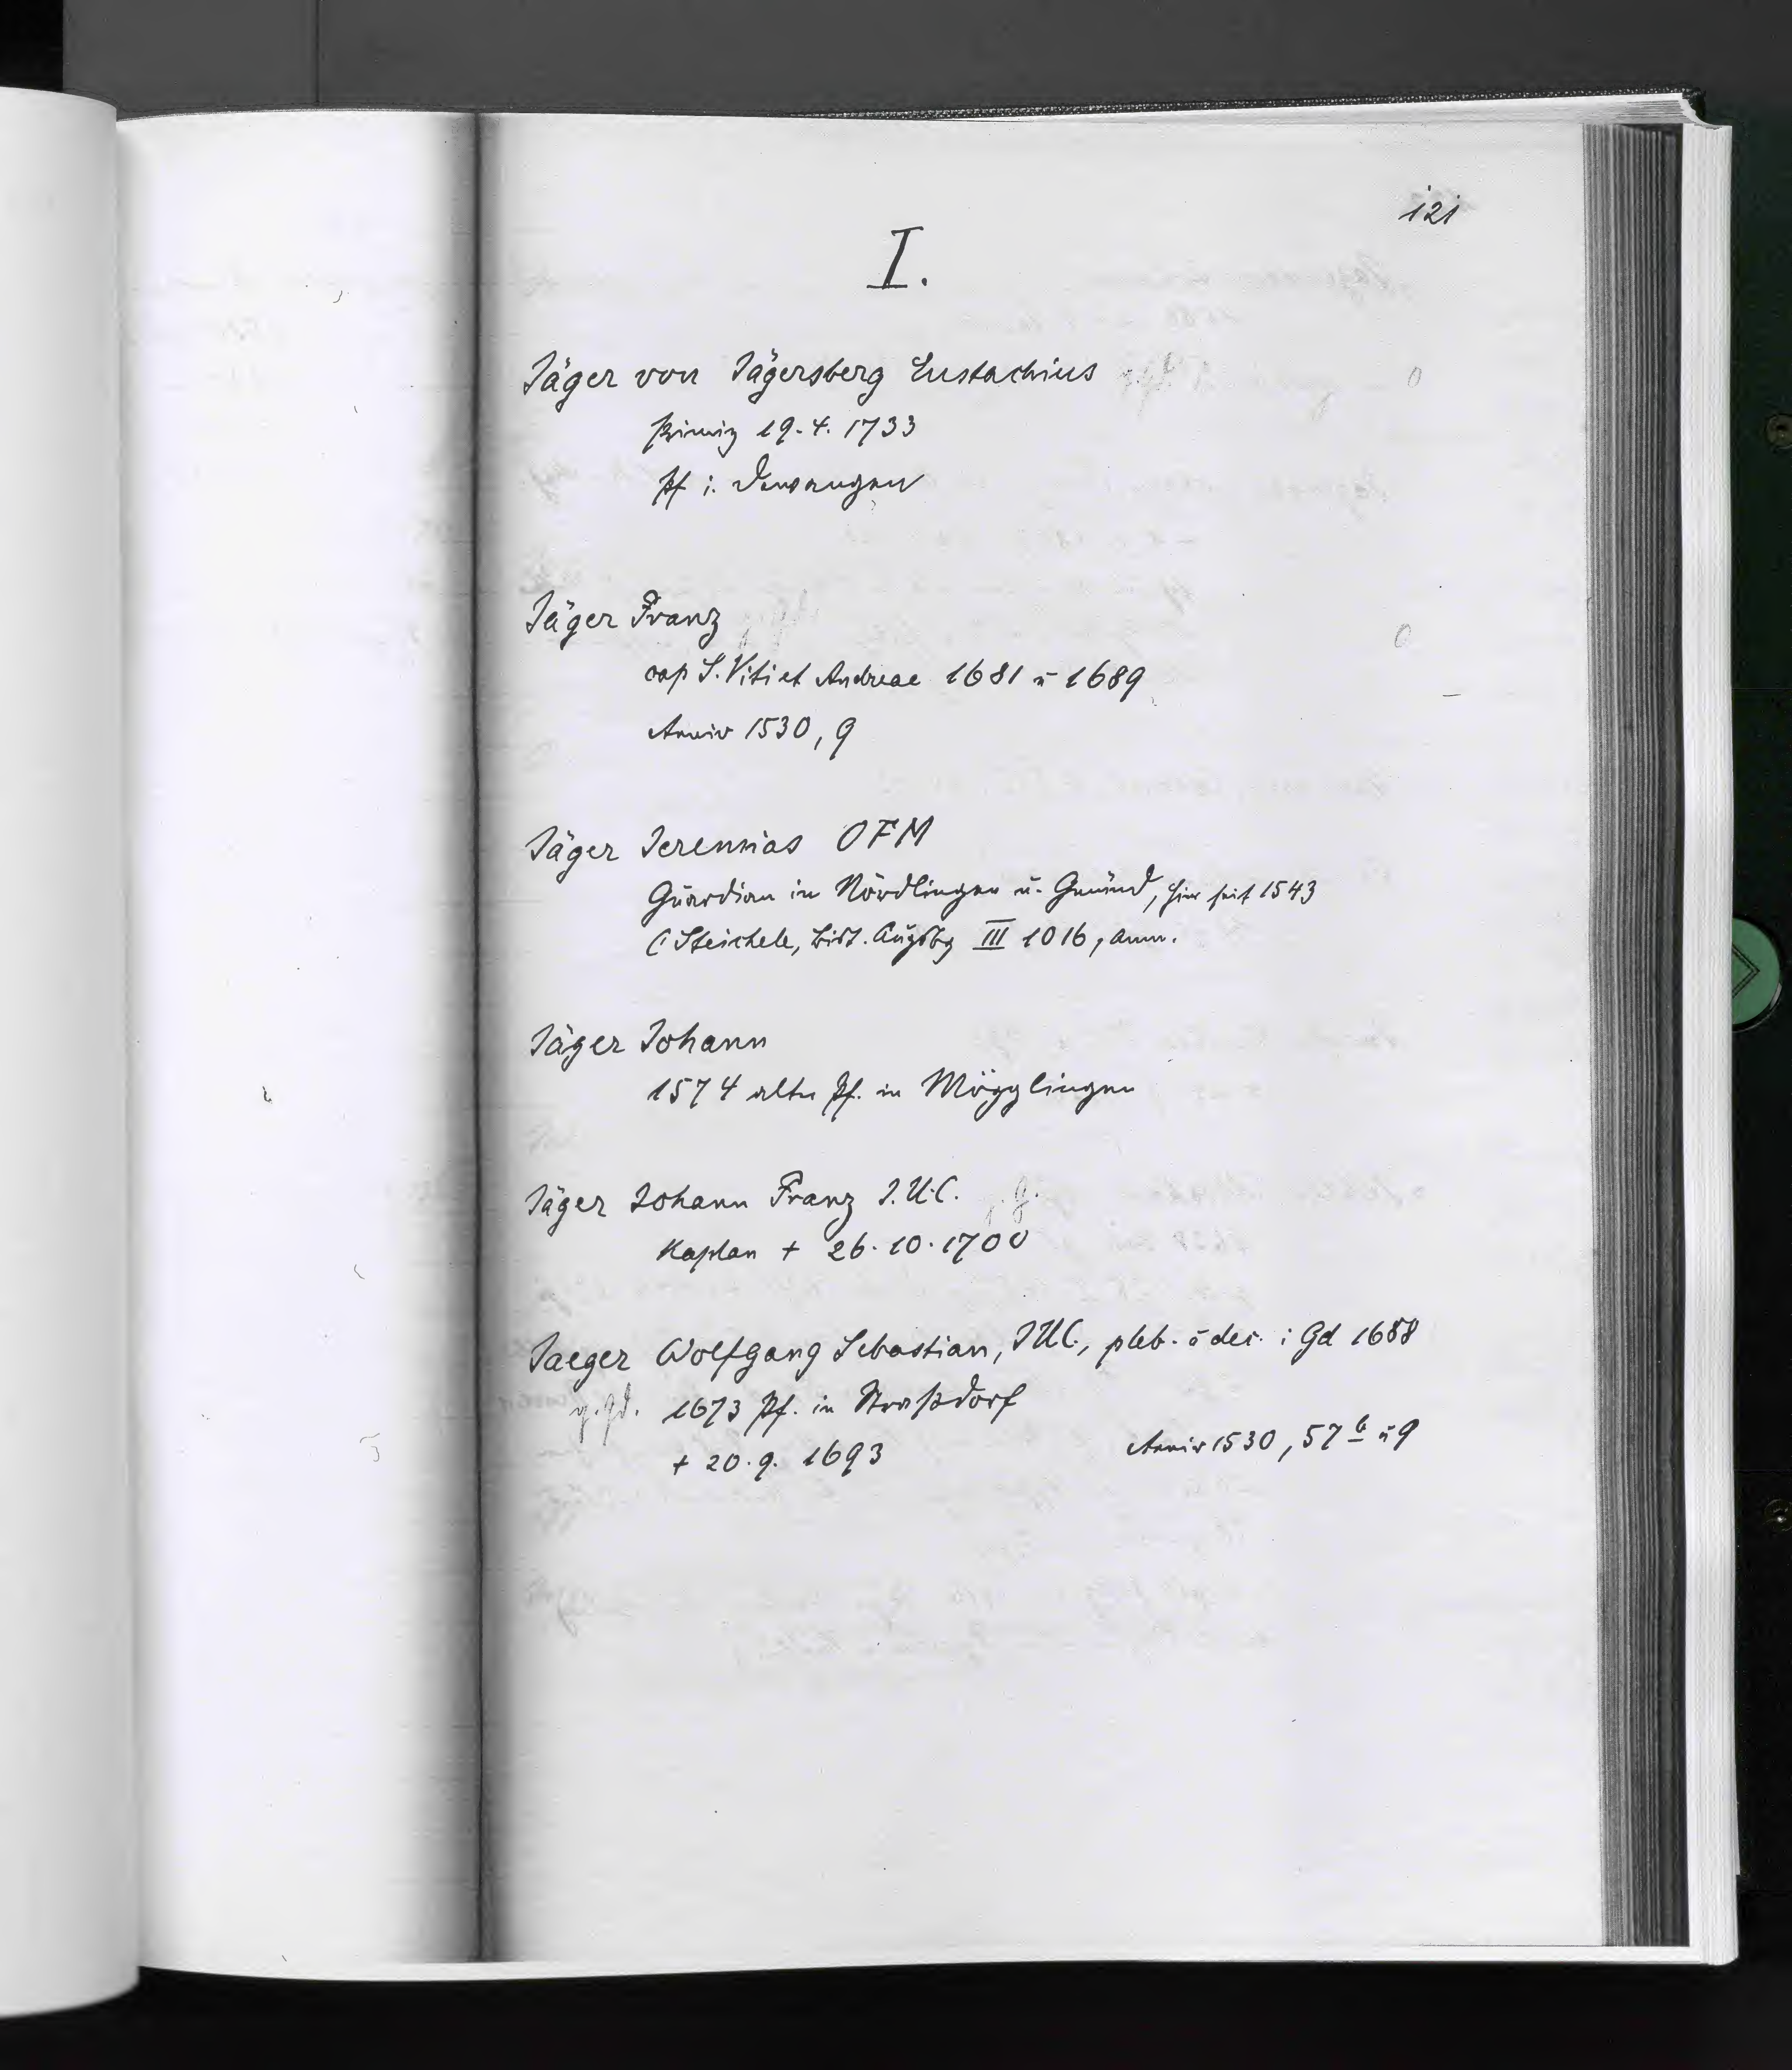 121
I.
Jäger von Jägersberg Eustachius
Primiz 19.4.1733
Pf i. Dewangen
Jäger Franz
cap S. Viti et Andreae 1681 ü 1689
Anniv 1530, 9
Jäger Jeremias OFM
Guardian in Nördlingen u. Gmünd, hier seit 1543
(Steichele, Bist. Augsbg III 1016, Anm.
Jäger Johann
1574 alter Pf. in Mögglingen
Jäger Johann Franz J.U.C.
Kaplan + 26.10.1700
Jaeger Wolfgang Sebastian, JUC., pleb. ü dec. i Gd 1688
v. Gd. 1673 Pf. in Straßdorf
+ 20.9. 1693
Anniv 1530, 57 b ü 9